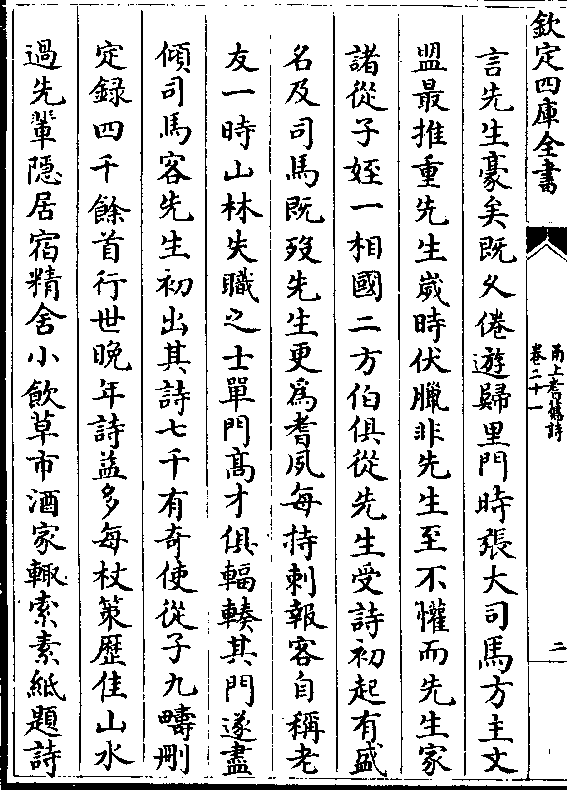 欽定四庫全書
甬上耆舊詩
卷二十一
二
言先生豪矣既久倦遊歸里門時張大司馬方主文
盟最推重先生嵗時伏臘非先生至不懽而先生家
諸從子姪一相國二方伯俱從先生受詩初起有盛
名及司馬既歿先生更為耆夙每持刺報客自稱老
友一時山林失職之士單門髙才俱輻輳其門遂盡
傾司馬客先生初出其詩七千有奇使從子九疇刪
定録四千餘首行世晩年詩益多每杖策歴佳山水
過先輩隠居宿精舍小飲草市酒家輙索素紙題詩